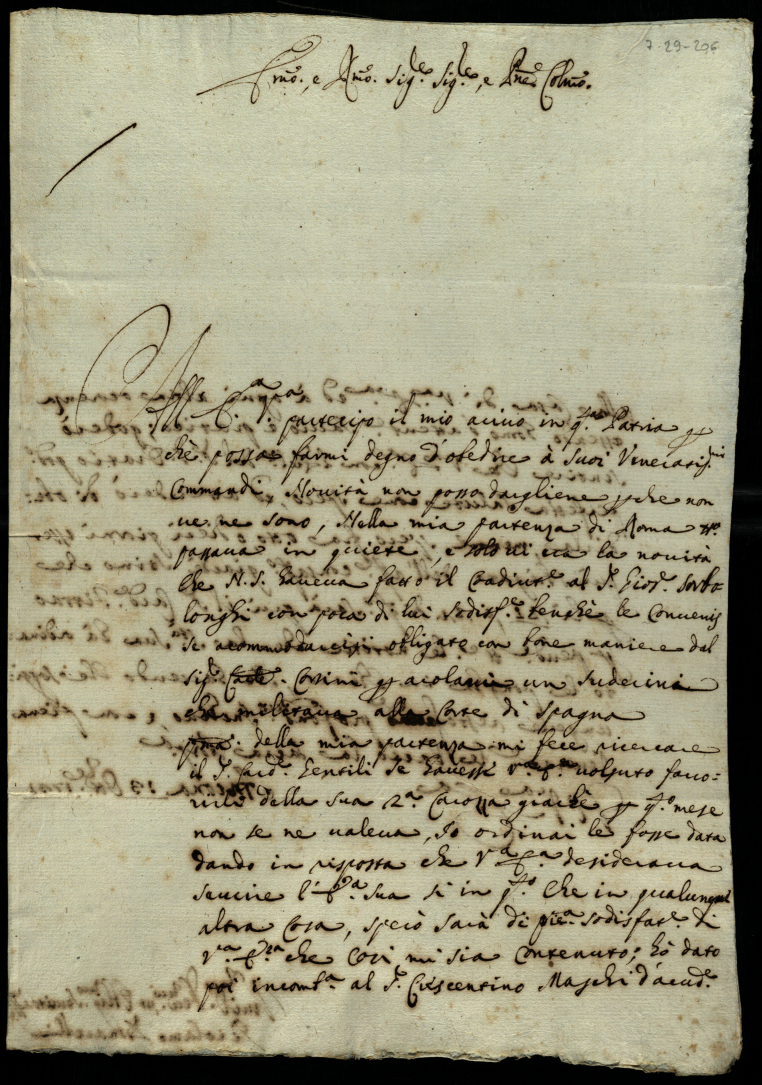 7-29-206
Emo. e Rmo. Sigre. Sigre, e Pne Colmo.
All' Ema Vra partecipo il mio arivo in qta Patria per
chè possa farmi degno d'obedire à suoi Veneratismi
Commandi. Novità non posso dargliene perche non
ue ne sono, Nella mia partenza di Roma tto
passaua in quiete, e solo ui era la novità
che N. S. haueua fatto il Coadiutre al Sr. Giosr. Sorbo-
longhi con poca di lui sodisfne benchè le Convenis
se acommodarcisi obligate con bone maniere dal
Sigr. Corsini per acolarui un Suderini
che militaua alla Corte di Spagna
pma della mia partenza mi fece ricercare
il Sr. Card. Gentili se hauesse va Ema uolsuto fauo-
rirli della sua 2a Carozza giachè per qto mese
non se ne ualeua, Io ordinai le fosse data
dando in risposta che Va Ema desideraua
seruire l'Ema Sua si in qto che in qualunque
altra cosa, sperò sarà di piea sodisfae di
Va Ema che così mi sia contenuto; hò dato
poi incomba al Sr. Crescentino Maschi d'acude